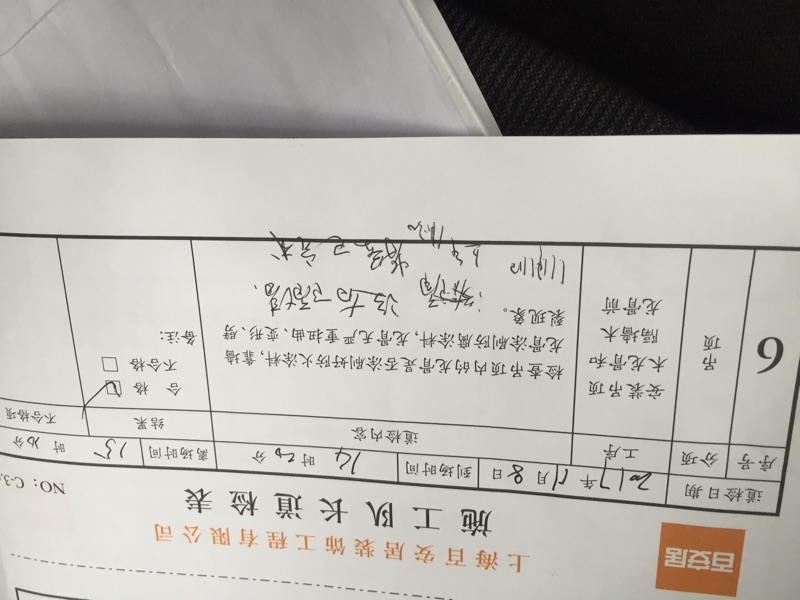 百安居
上海百安居装饰工程有限公司
施工队长道检表
NO：C-3.
道检日期 2017年11月8日 到场时间 14时20分 离场时间 15时20分
序号 分项 工序 道检内容 结果 不合格项
6
吊项
安装吊项
木龙骨和
隔墙木
龙骨前
检查吊顶内的龙骨是否涂刷好防火涂料，靠墙
龙骨涂刷防腐涂料，龙骨无严重扭曲、变形、劈
裂现象。
合格
不合格
备注：